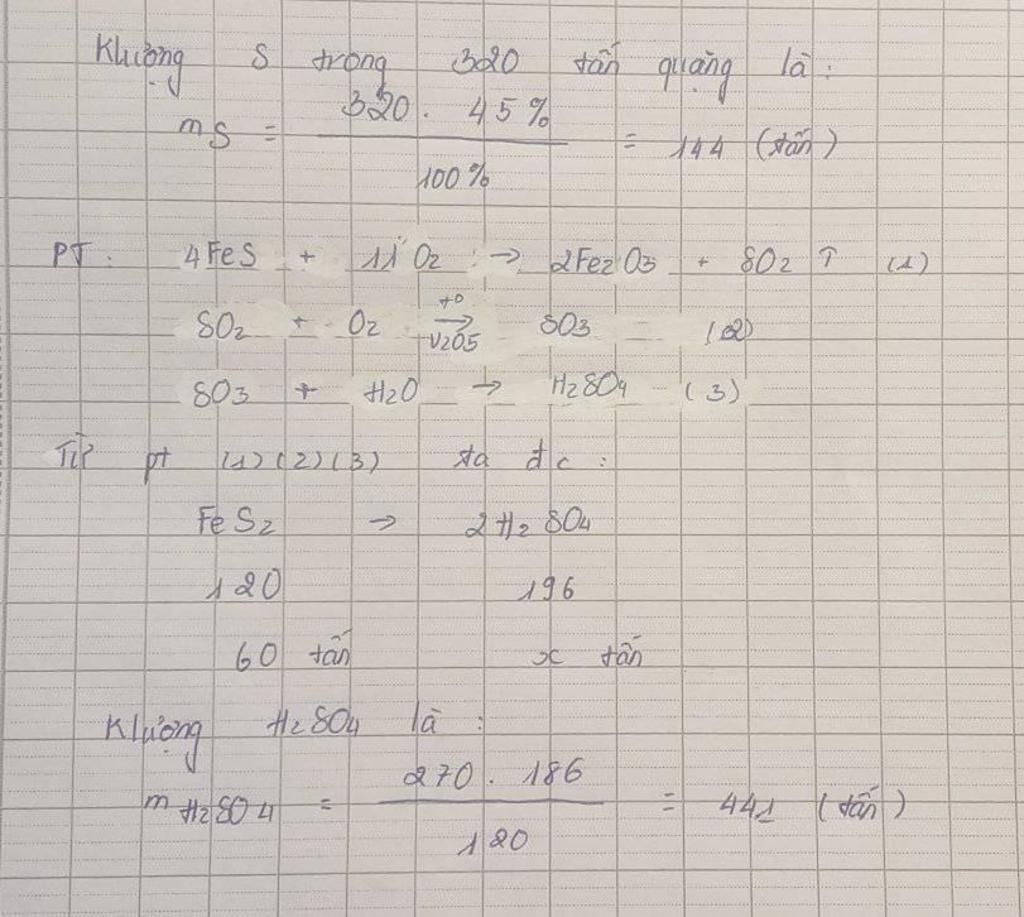 Klượng S trong 320 tấn quặng là:
mS = 320. 45% / 100% = 144 (tấn)
PT: 4FeS + 11 O2 → 2Fe2O3 + 8O2 ↑ (1)
SO2 + O2 →(t°, V2O5) SO3 (2)
SO3 + H2O → H2SO4 (3)
Từ pt (1)(2)(3) ta đc:
FeS2 → 2H2SO4
120 196
60 tấn x tấn
Klượng H2SO4 là:
mH2SO4 = 270. 186 / 120 = 441 (tấn)